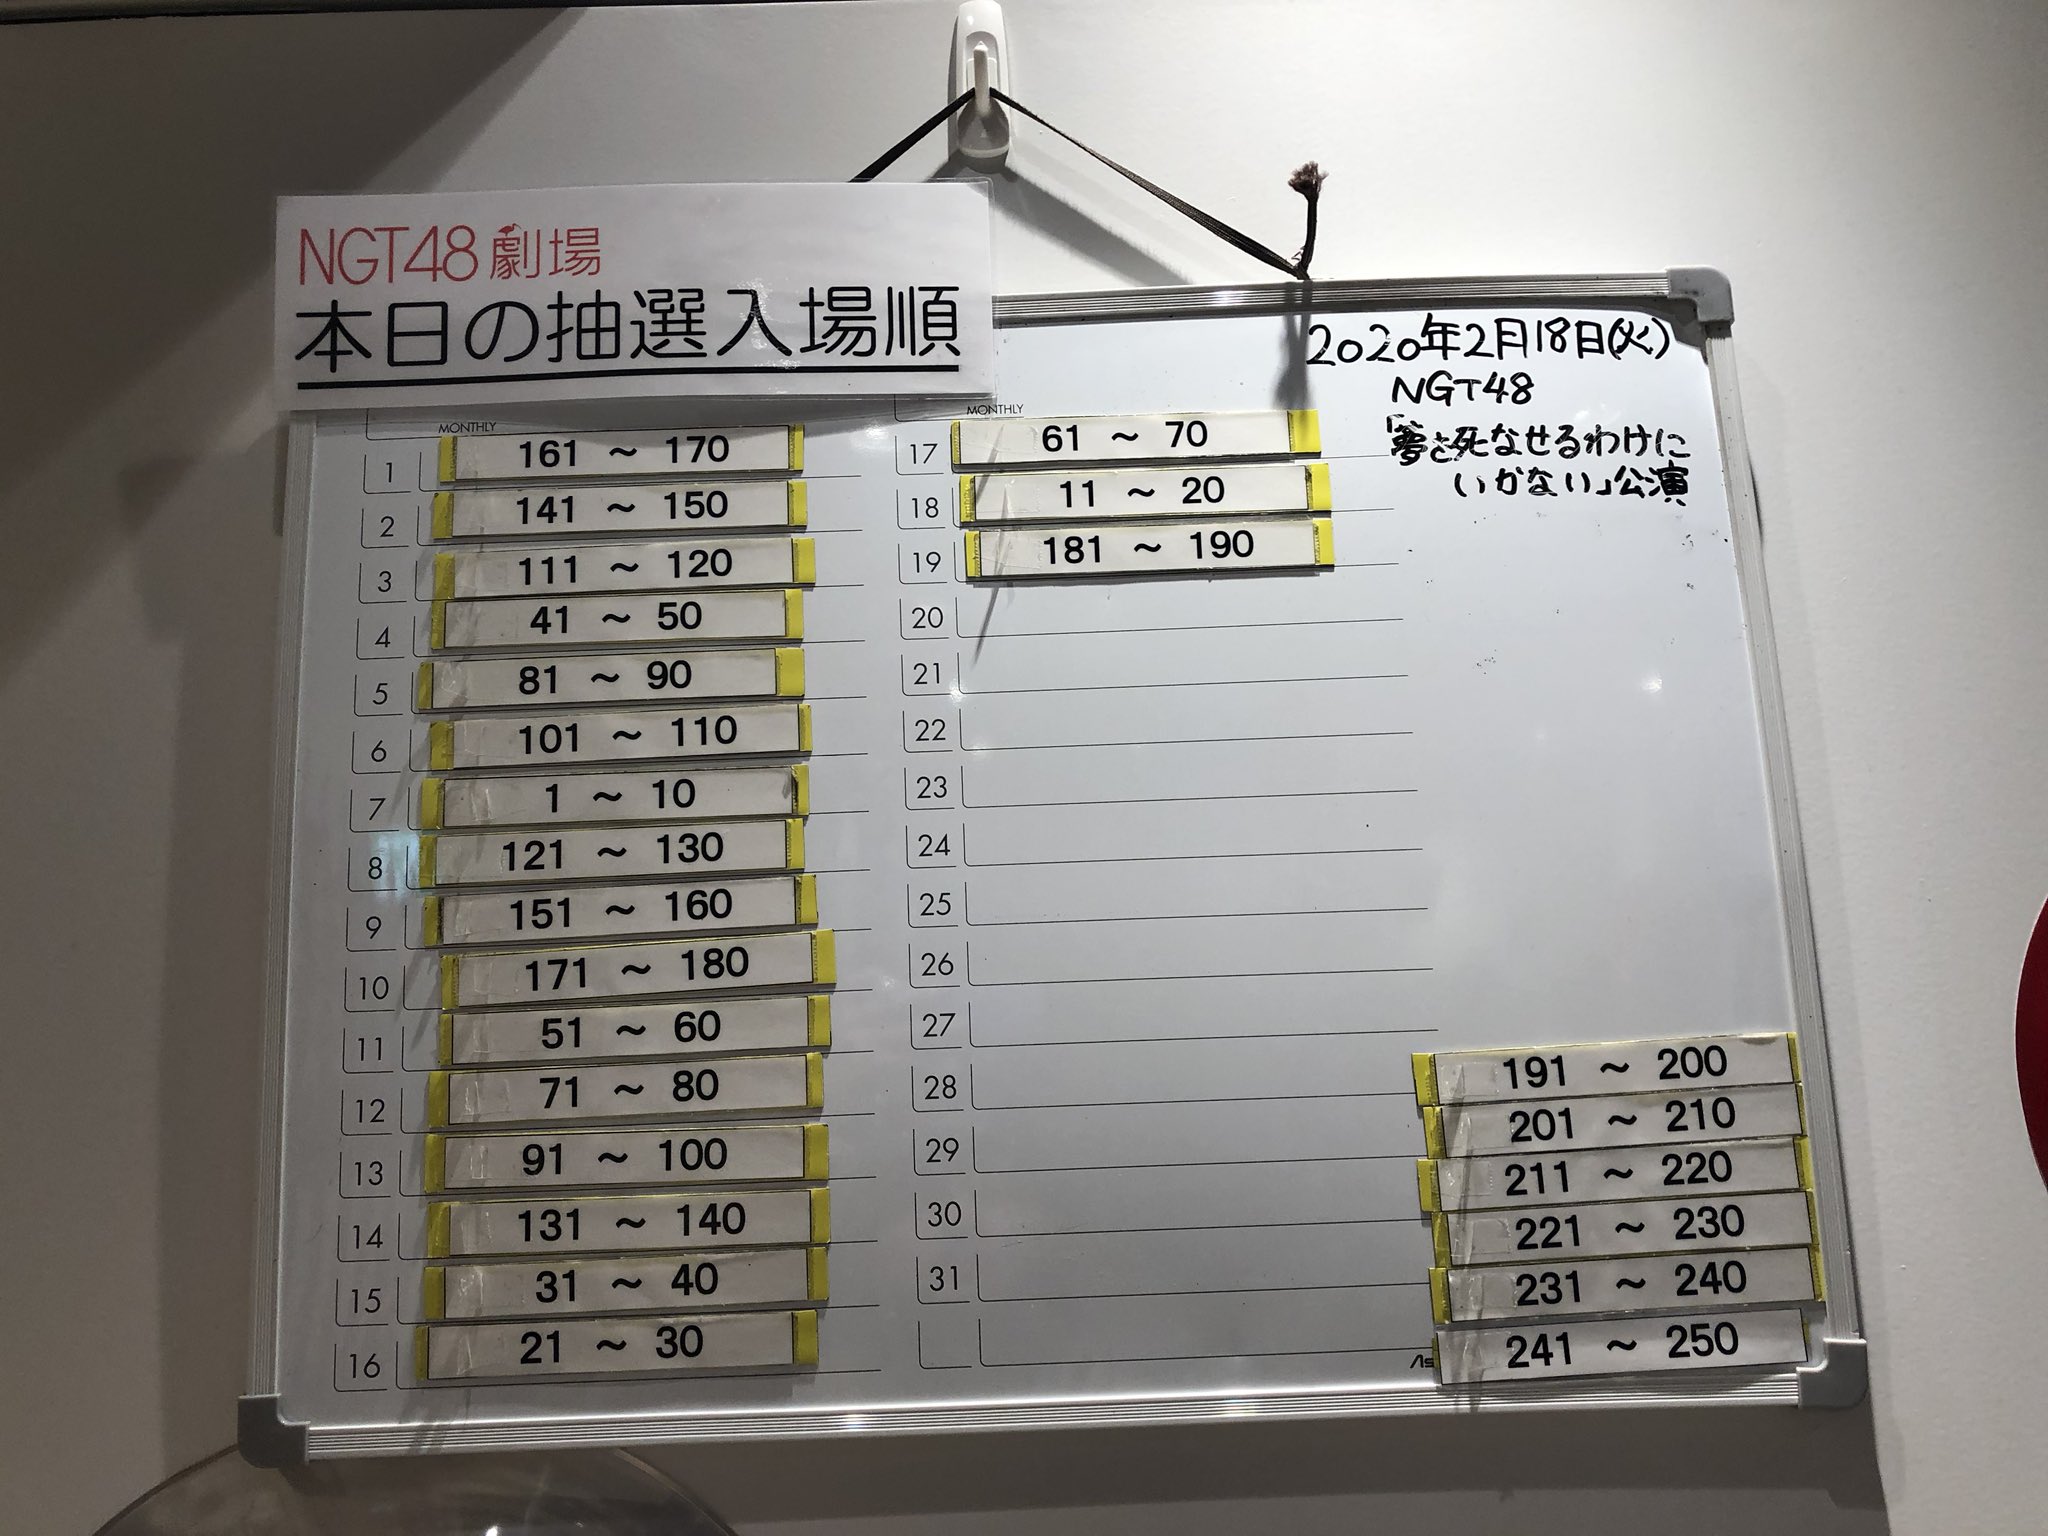 NGT48劇場
本日の抽選入場順
2020年2月18日(火)
NGT48
「夢を死なせるわけに
いかない」公演
MONTHLY
1 161 ~ 170
2 141 ~ 150
3 111 ~ 120
4 41 ~ 50
5 81 ~ 90
6 101 ~ 110
7 1 ~ 10
8 121 ~ 130
9 151 ~ 160
10 171 ~ 180
11 51 ~ 60
12 71 ~ 80
13 91 ~ 100
14 131 ~ 140
15 31 ~ 40
16 21 ~ 30
MONTHLY
17 61 ~ 70
18 11 ~ 20
19 181 ~ 190
20
21
22
23
24
25
26
27
28
29
30
31
191 ~ 200
201 ~ 210
211 ~ 220
221 ~ 230
231 ~ 240
241 ~ 250